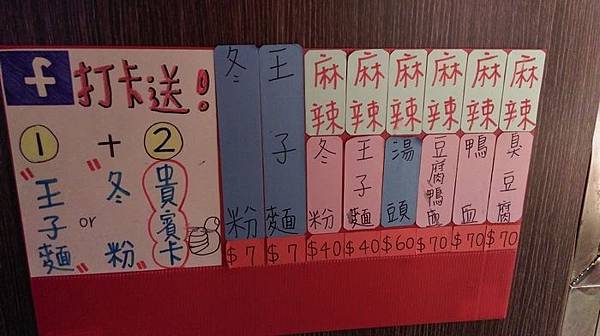 f 打卡送!
1 + 2
"王子麵" or "冬粉"
貴賓卡
冬粉 $7
王子麵 $7
麻辣冬粉 $40
麻辣王子麵 $40
麻辣湯頭 $60
麻辣豆腐鴨血 $70
麻辣鴨血 $70
麻辣臭豆腐 $70